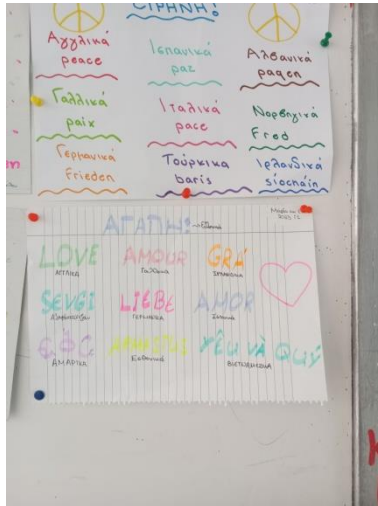 ΕΙΡΗΝΗ!
Αγγλικά
peace
Ισπανικά
paz
Αλβανικά
paqen
Γαλλικά
paix
Ιταλικά
pace
Νορβηγικά
Fred
Γερμανικά
Frieden
Τούρκικα
baris
Ιρλανδικά
síocháin
ΑΓΑΠΗ!
LOVE
ΑΓΓΛΙΚΑ
AMOUR
Γαλλικά
GRÁ
SEVGI
LIEBE
ΓΕΡΜΑΝΙΚΑ
AMOR
ΑΜΑΡΙΚΑ
YÊU VÀ QUÝ
ΒΙΕΤΝΑΜΕΖΙΚΑ